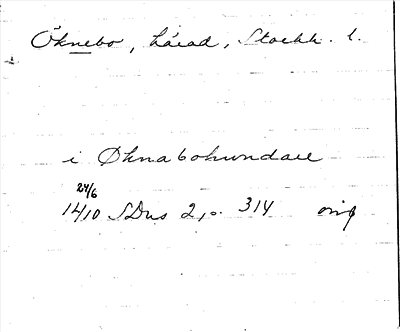 Öknebo, härad, Stockh. l.
i Øknabohundare
24/6
1410 SDns 2, s. 314 orig